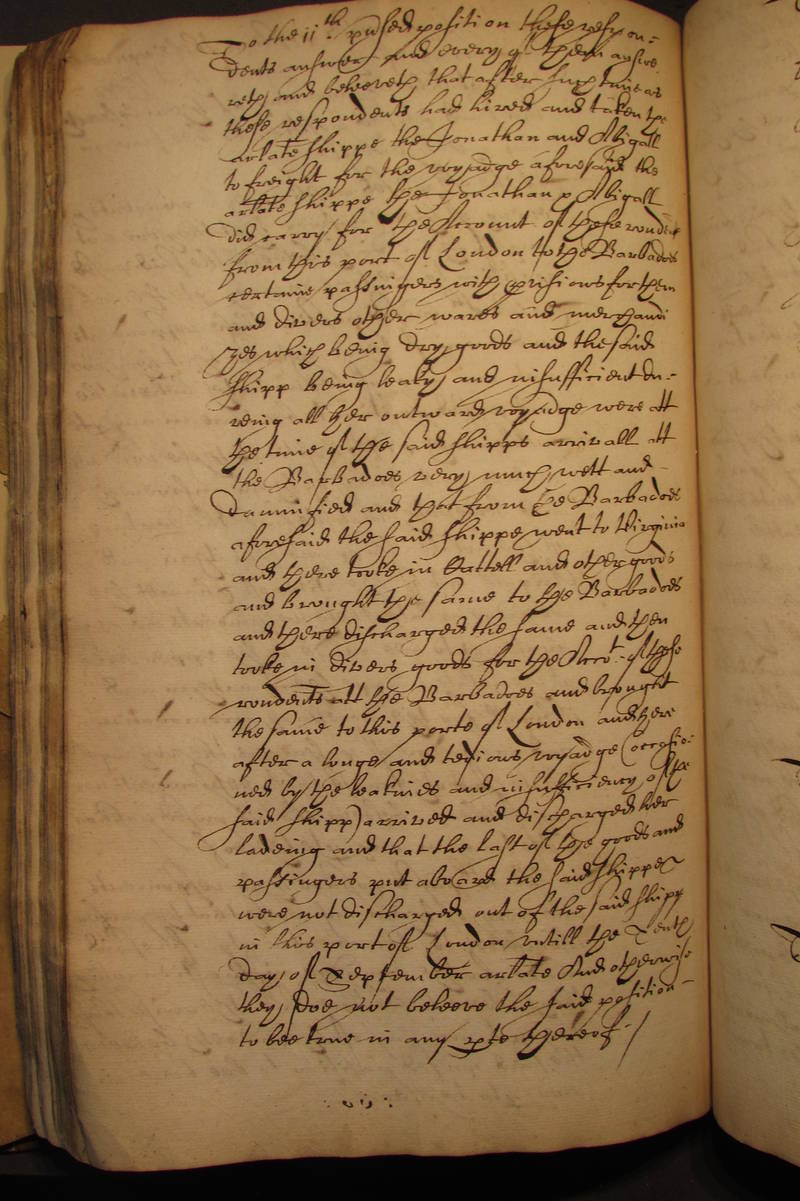 To the 11th pnsed position these respon=
dents answer and every of them answe
reth and beleeveth that after such time as
these respondents had hired and taken the
arlate shippe the Jonathan and Abigall
to freight for the voyadge aforesaid the
arlate shippe the Jonathan & Abigall
did carry for the Account of these rondents
from this port of London to the Barbados
certaine passingers with pvisions for them
and divers other wares and merchandi
zes which being dry goods and the said
shipp being leaky and insufficient du=
reing all her outward voyadge were att
the time of the said shipps arrivall att
the Barbadoes very much wett and
damnified and that from the Barbadoes
aforesaid the said shippe went to Virginia
and there tooke in Cattell and other goods
and brought the same to the Barbadoes
and there discharged the same and then
tooke in divers goods for the Accot. of these
rondents att the Barbadoes and brought
the same to this porte of London and here
after a longe and tedious voyadge (occasio=
ned by the leakines and insufficiency of the
said shipp) arrived and discharged her
ladeing and that the last of the goods and
passingers put aboard the said shippe
were not discharged out of the said shipp
in this port of London untill the Tenth
day of September arlate And otherwise
they doe not beleeve the said position
to bee true in any pte thereof /